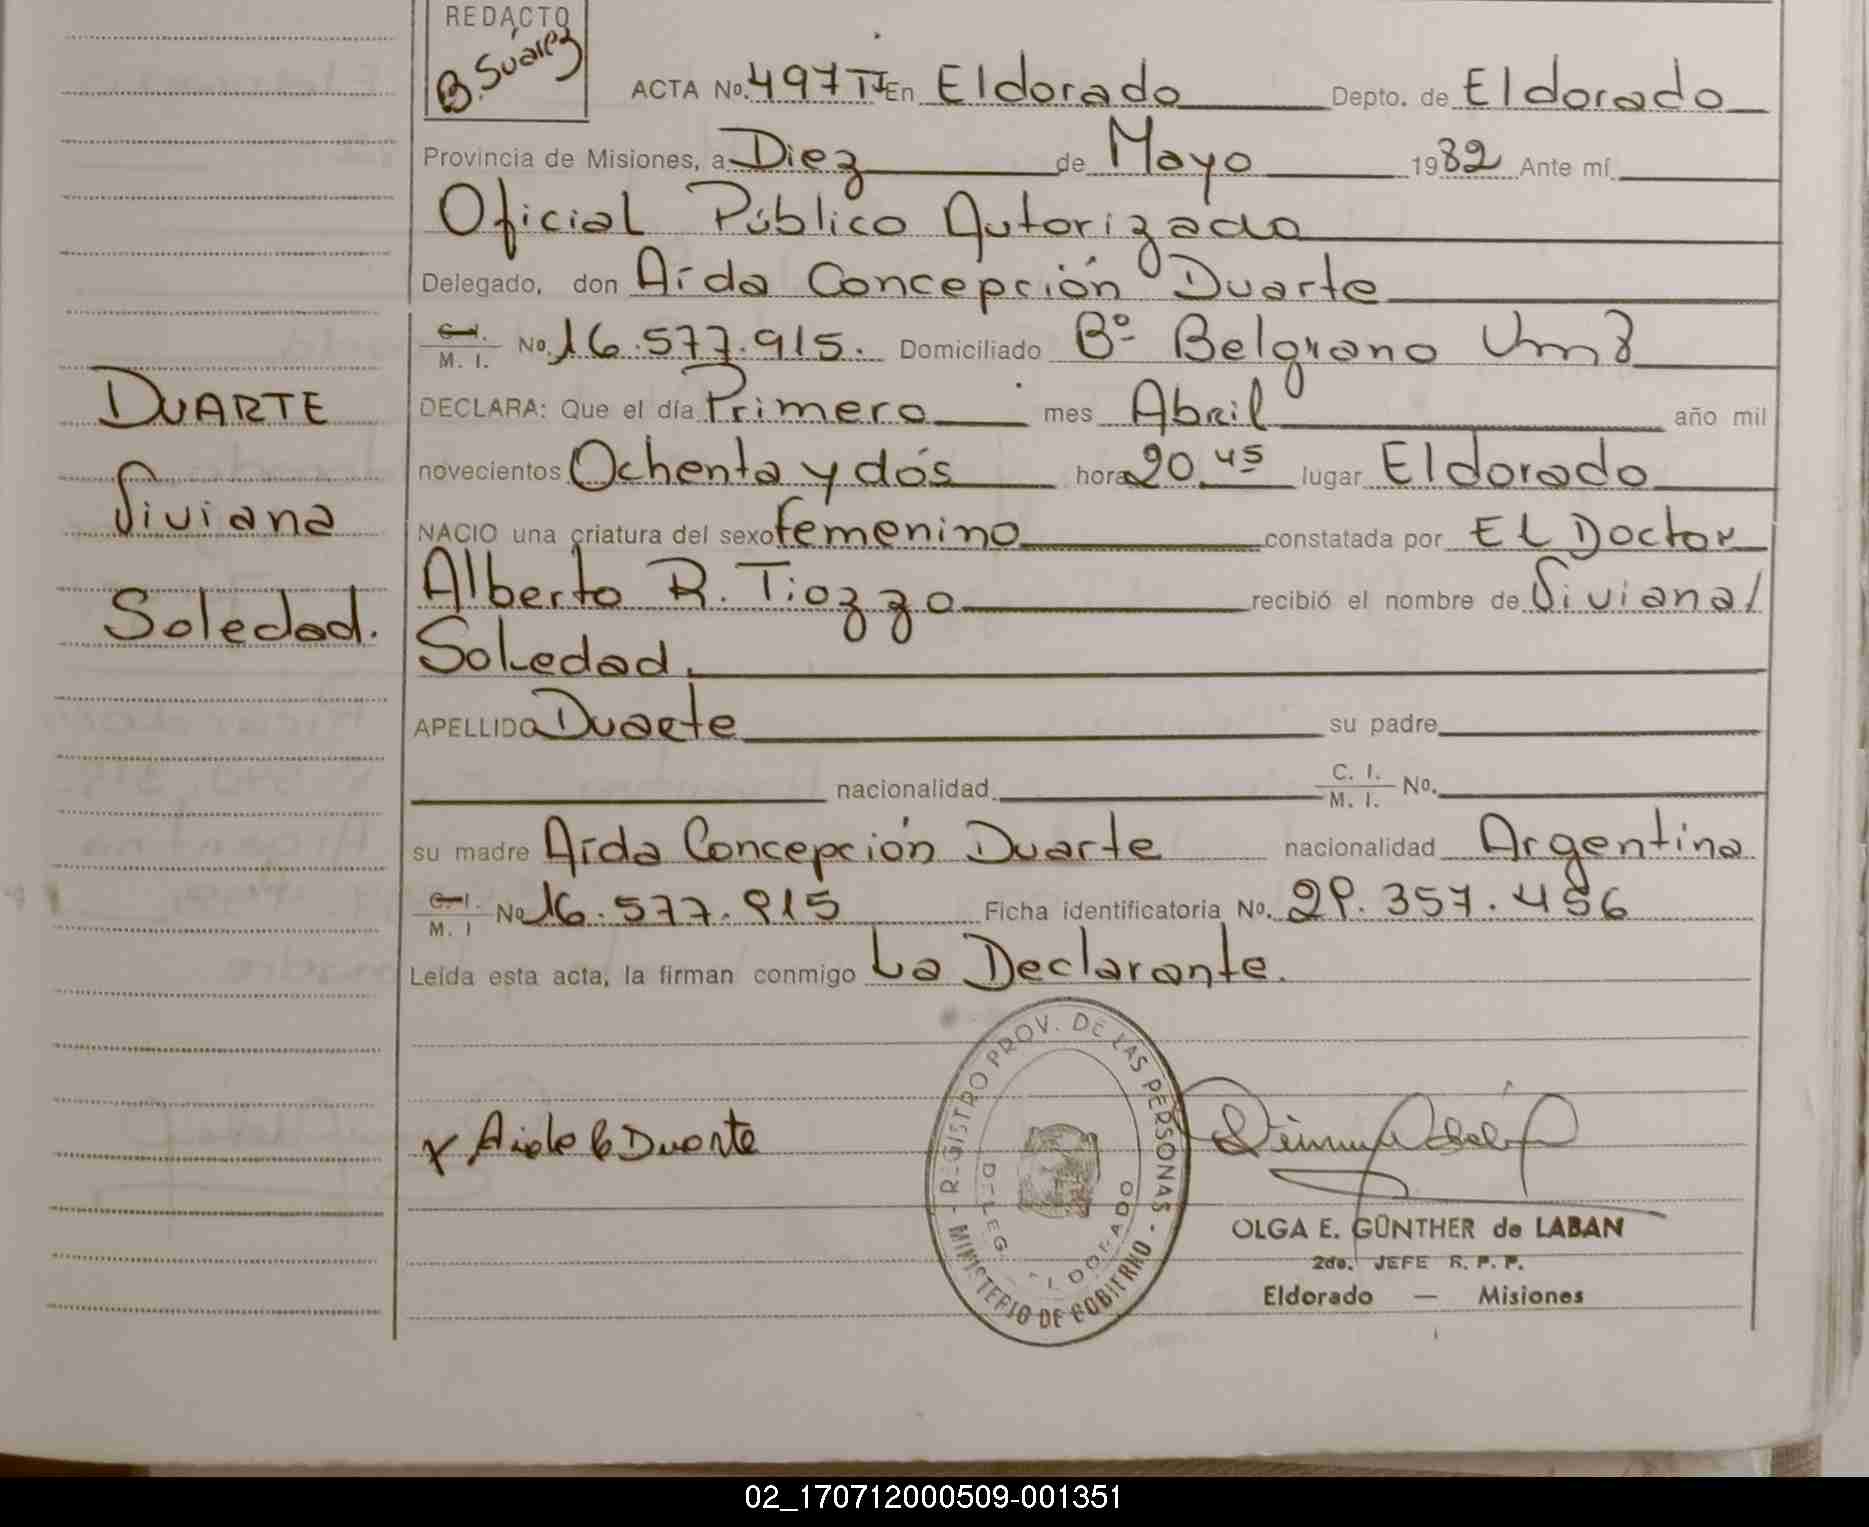 REDACTO
B. Suárez
ACTA No. 497 TI En Eldorado Depto. de Eldorado
Provincia de Misiones, a Diez de Mayo 1982 Ante mí
Oficial Público Autorizado
Delegado, don Aída Concepción Duarte
C.I. M. I. No. 16.577.915. Domiciliado Bº Belgrano
DECLARA: Que el día Primero mes Abril año mil
novecientos Ochenta y dós hora 20.45 lugar Eldorado
NACIO una criatura del sexo femenino constatada por EL Doctor
Alberto R. Tiozzo recibió el nombre de Viviana/
Soledad.
APELLIDO Duarte su padre
nacionalidad C. I. M. I. No.
su madre Aída Concepción Duarte nacionalidad Argentina
C.I. M. I No 16.577.915 Ficha identificatoria No. 29.357.456
Leída esta acta, la firman conmigo La Declarante.
DUARTE
Viviana
Soledad.
x Aida C Duarte
REGISTRO PROV. DE LAS PERSONAS - MINISTERIO DE GOBIERNO -
DELEG. ELDORADO
OLGA E. GÜNTHER de LABAN
2do. JEFE R. P. P.
Eldorado — Misiones
02_170712000509-001351